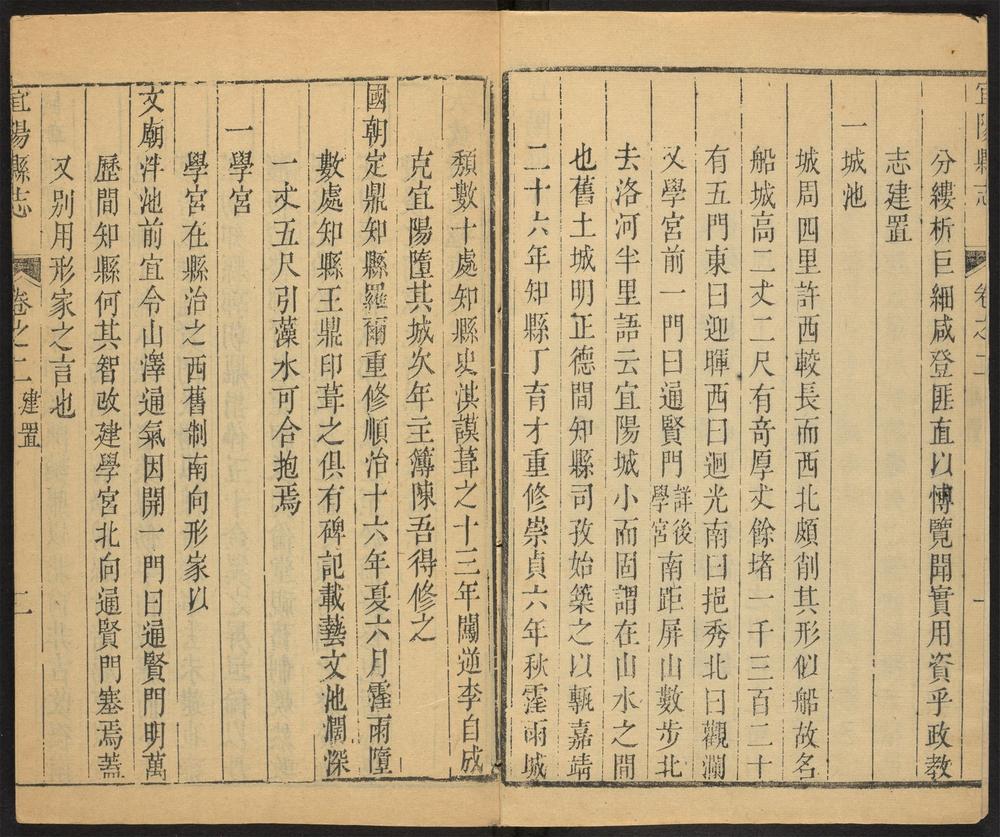 宜陽縣志
卷之二
一
分縷析巨細咸登匪直以博覽聞實用資乎政教
志建置
一城池
城周四里許西較長而西北頗削其形似船故名
船城高二丈二尺有奇厚丈餘堵一千三百二十
有五門東曰迎暉西曰迴光南曰挹秀北曰觀瀾
又學宮前一門曰通賢門詳後學宮南距屏山數步北
去洛河半里語云宜陽城小而固謂在山水之間
也舊土城明正德間知縣司孜始築之以甎嘉靖
二十六年知縣丁育才重修崇貞六年秋霪雨城
頹數十處知縣史洪謨葺之十三年闖逆李自成
克宜陽墮其城次年主簿陳吾得修之
國朝定鼎知縣羅爾重修順治十六年夏六月霪雨墮
數處知縣王鼎印葺之俱有碑記載藝文池濶深
一丈五尺引藻水可合抱焉
一學宮
學宮在縣治之西舊制南向形家以
文廟泮池前宜令山澤通氣因開一門曰通賢門明萬
歷間知縣何其智改建學宮北向通賢門塞焉蓋
又別用形家之言也
宜陽縣志
卷之二
建置
二